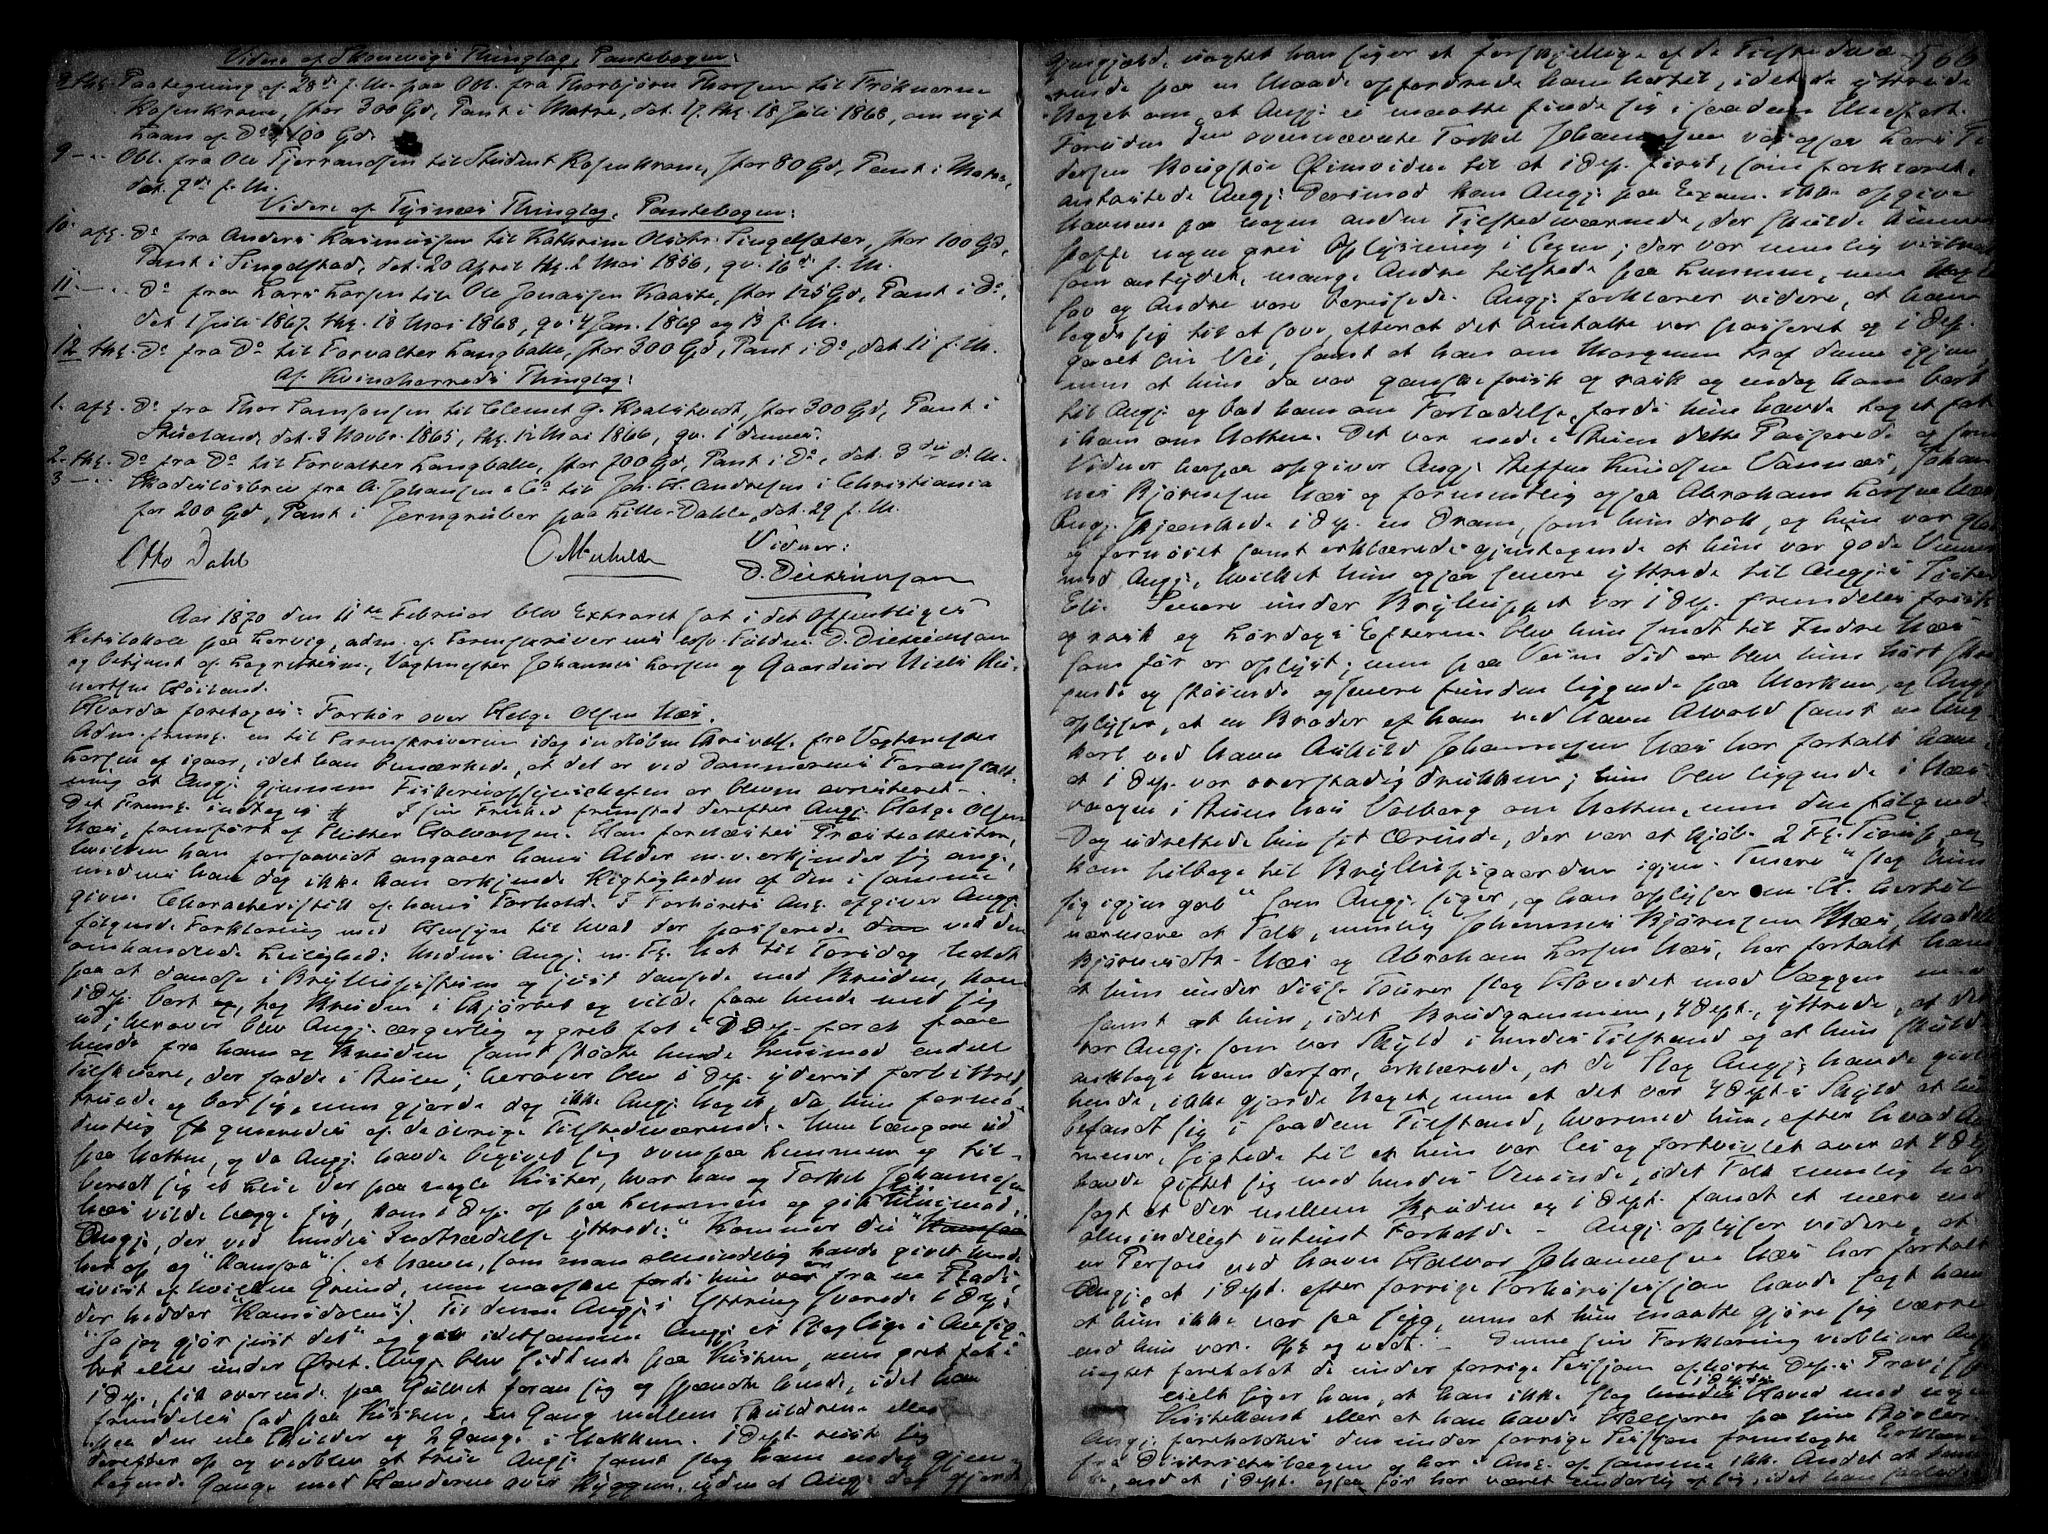 Videre af Skonevigs Thinglag, Pantebogen:
Paategning af 28de f. M. paa Obl. fra Thorbjørn Thorsen til Frøknerne
Rosenkrone, stor 300 Spd, Pant i Matre, dat. 17. thg. 18 Juli 1868, om nyt
Laan af Do, 100 Spd.
9 - - Obl. fra Ole Tjerrandsen til Student Rosenkrone, stor 80 Spd, Pant i Matre,
dat. 7de f. M.
Videre af Tysnæs Thinglag, Pantebogen:
10. afl. Do fra Anders Rasmussen til Kathrine Olsdtr. Singelsæter, stor 100 Spd,
Pant i Singelstad, dat. 20 April thg. 2 Mai 1856, qv. 16de f. M.
11 - - Do fra Lars Larsen til Ole Jonassen Kaaste, stor 125 Spd, Pant i Do,
dat. 1 Juli 1867, thg. 18 Mai 1868, qv. 4 Jan. 1869 og 13 f. M.
12 thg. Do fra Do til Forvalter Langballe, stor 300 Spd, Pant i Do, dat. 11 f. M.
Af Kvindherreds Thinglag:
1. afl. Do fra Thor Samsonsen til Clemet G. Kvalstvedt, stor 300 Spd, Pant i
dat. 3 Novbr. 1865, thg. 12 Mai 1866, qv. 1 dennes.
2. thg. Do fra Do til Forvalter Langballe, stor 700 Spd, Pant i Do, dat. 3die d. M.
3 - - Skadesløsbrev fra A. Johansen & Co til Joh. H. Andresen i Christiania
for 200 Spd, Pant i Jerngruber paa Lille-Dahle, dat. 29 f. M.
Otto Dahl
Vidner:
D. Didrichsen
Aar 1870 den 11te Februar blev Extraret sat i det offentlige
Retslokale paa Lervig, adm. af Sorenskriverens Fuldm. D. Didrichsen
og betjent af Lagrettem. Vagtmester Johannes Larsen og Gaardbr. Niels
Høiland.
Hvorda foretoges: Forhør over Helge Olsen Næs.
Adm. freml. en til Sorenskriveren idag indkommen Skrivelse fra Vagtmester
Larsen af igaar, idet han bemærkede, at det er ved Dommerens Foranstalt-
ning at Angj. gjennem er bleven arresteret.
Det Freml. indtages # I sin Frihed fremstod derefter Angj. Helge Olsen
Næs, fremført af Halvorsen. Han forelæstes Præsteattesten,
hvilken han forsaavidt angaaer hans Alder m. v. erkjender sig ang.,
medens han dog ikke kan erkjende Rigtigheden af den i samme
givne Charakteristik af hans Forhold. I Forhørets Anl. afgiver Angj.
følgende Forklaring med Hensyn til hvad der passerede ved den
omhandlede Leilighed: Medens Angj. m. Fl. Nat til Torsdag holdt
paa at dandse i Bryllupsstuen og just dansede med Bruden, kom
1 Dep. bort og tog Bruden i Skjørtet og vilde faae hende med sig
ud; herover blev Angj. ærgerlig og greb fat i 1 Dep. for at faae
hende fra ham og Bruden samt stødte hende henimod endeel
Tilskuere, der sadde i Stuen; herover blev 1 Dep. yderst forbittret
truede og bar sig, men gjorde dog ikke Angj. Noget, da hun formo-
dentlig generedes af de øvrige Tilstedeværende. Men længere ud
paa Natten, og da Angj. havde begivet sig ovenpaa Lemmen og til-
beredt sig et Leie der paa nogle Kister, hvor han og Torkel Johannesen
Næs vilde lægge sig, kom 1 Dep. op paa Lemmen og gik henimod
Angj., der ved hendes Indtrædelse yttrede: "Kommer du
her op og "Ramsaa" (et Navn, som man almindelig havde givet hende
uvist af hvilken Grund, men maaskee fordi hun var fra en Plads,
der hedder "Ramsdalen"). Til denne Angj.s Yttring svarede 1 Dep.
"Ja jeg gjør just det" og gav idetsamme Angj. et Slag lige i Ansig-
tet eller under Øret. Angj. blev siddende paa Kisten, men greb fat i
1 Dep., fik overende paa Gulvet foran sig og spændte hende, idet han
fremdeles sad paa Kisten, en Gang mellem Skuldrene eller
paa den ene Skulder og 2 Gange i Nakken. 1 Dep. reiste sig
derefter op og vedblev at true Angj. samt slog ham endog gjen-
tagende Gange med Hænderne over Ryggen, uden at Angj. dog gjorde
566
Gjengjæld, uagtet han siger at forskjellige af de Tilstedevæ-
rende paa en Maade opfordrede ham hertil, idet de yttrede
Noget om, at Angj. ei maatte finde sig i saadan Medfart.
Foruden den ovennævnte Torkel Johannesen var ogsaa Lars
dersen til at 1 Dep. først, som forklaret,
antastede Angj. Derimod kan Angj. paa Exam. ikke opgive
Navnene paa nogen anden Tilstedeværende, der skulde kunne
skaffe nogen Oplysning i Sagen; der var nemlig vistnok
som antydet, mange Andre tilstede paa Lemmen, men Nogle
sov og Andre vare berusede. Angj. forklarer videre, at han
lagde sig til at sove, efterat det Omtalte var passeret og 1 Dep.
gaaet sin Vei, samt at han om Morgenen traf denne igjen,
men at hun da var ganske frisk og rask og endog kom bort
til Angj. og bad ham om Forladelse, fordi hun havde taget fat
i ham om Natten. Det var nede i Stuen dette Passerede og som
Vidner herpaa opgiver Angj. Steffen Knudsen Vannæs, Johan-
nes Bjørnsen Næs og formentlig ogsaa Abraham Larsen Næs.
Angj. skjænkede 1 Dep. en Dram, som hun drak, og hun var glad
og fornøiet samt erklærede gjentagende at hun var gode Venner
med Angj., hvilket hun ogsaa senere yttrede til Angj.s Søster
Eli. Senere under Brylluppet var 1 Dep. fremdeles frisk
og rask og Lørdags Efterm. blev hun sendt til Indre Næs
som før er oplyst; men paa Veien did blev hun hørt skri-
gende og støiende og senere funden liggende paa Marken, og Angj.
oplyser, at en Broder af ham ved Navn Alvald samt en Ung-
karl ved Navn Askild Johannesen Næs har fortalt ham
at 1 Dep. var overstadig drukken; hun blev liggende i Næs
vaagen i Stuen hos Valborg om Natten, men den følgende
Dag udrettede hun sit Ærinde, der var at kjøbe 2 , og
kom tilbage til Bryllupsgaarden igjen. Senere "slog hun
sig igjen gal" som Angj. siger, og han oplyser m. H. hertil
nærmere at Folk, nemlig Johannes Bjørnsen Næs,
Bjørnsdtr. Næs og Abraham Larsen Næs, har fortalt ham
at hun under disse Tourer slog Hovedet mod Væggen
samt at hun, idet Brudgommen, 4 Dept., yttrede, at det
var Angj. som var Skyld i hendes Tilstand og at hun skulde
anklage ham derfor, erklærede, at de Slag Angj. havde givet
hende, ikke gjorde Noget, men at det var 4 Dept.s Skyld at hun
befandt sig i saadan Tilstand, hvormed hun, efter hvad An-
mener, sigtede til at hun var lei og fortvivlet over at 4 Dep.
havde giftet sig med hendes Veninde, idet Folk nemlig har
sagt at der mellem Bruden og 1 Dept. fandt et mere end
almindeligt intimt Forhold. - Angj. oplyser videre, at
en Person ved Navn Halvor Johannesen Næs har fortalt
Angj., at 1 Dept. efter forrige Forhørssession havde sagt ham
at hun ikke var saa syg, men at hun maatte gjøre sig værre
end hun var. Opl. og vedt. - Denne sin Forklaring vedbliver Angj.
uagtet foreholdt de under forrige Session afhørte Dep.s Prov.
Specielt siger han, at han ikke slog 1 Deps Hoved mod nogen
Kistekant eller at han havde paa sine Støvler.
Angj. foreholdtes den under forrige Session fremlagte Erklæring
fra Districtslægen og har i Anl. af samme ikke Andet at bemær-
ke, end at 1 Dept. ogsaa før har været underlig af sig, idet han saaledes